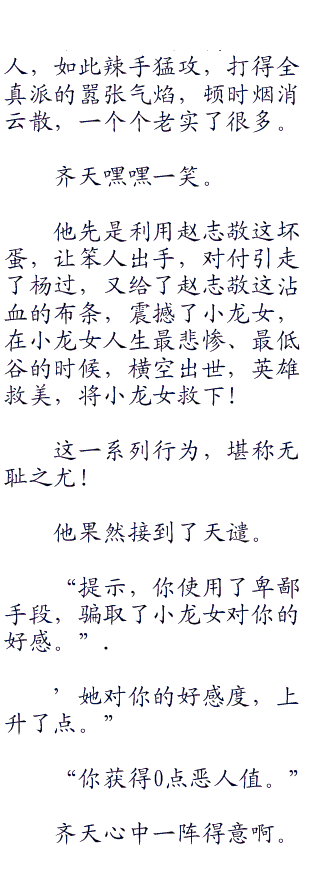 人，如此辣手猛攻，打得全
真派的嚣张气焰，顿时烟消
云散，一个个老实了很多。
齐天嘿嘿一笑。
他先是利用赵志敬这坏
蛋，让笨人出手，对付引走
了杨过，又给了赵志敬这沾
血的布条，震撼了小龙女，
在小龙女人生最悲惨、最低
谷的时候，横空出世，英雄
救美，将小龙女救下！
这一系列行为，堪称无
耻之尤！
他果然接到了天谴。
“提示，你使用了卑鄙
手段，骗取了小龙女对你的
好感。”.
’她对你的好感度，上
升了点。”
“你获得0点恶人值。”
齐天心中一阵得意啊。